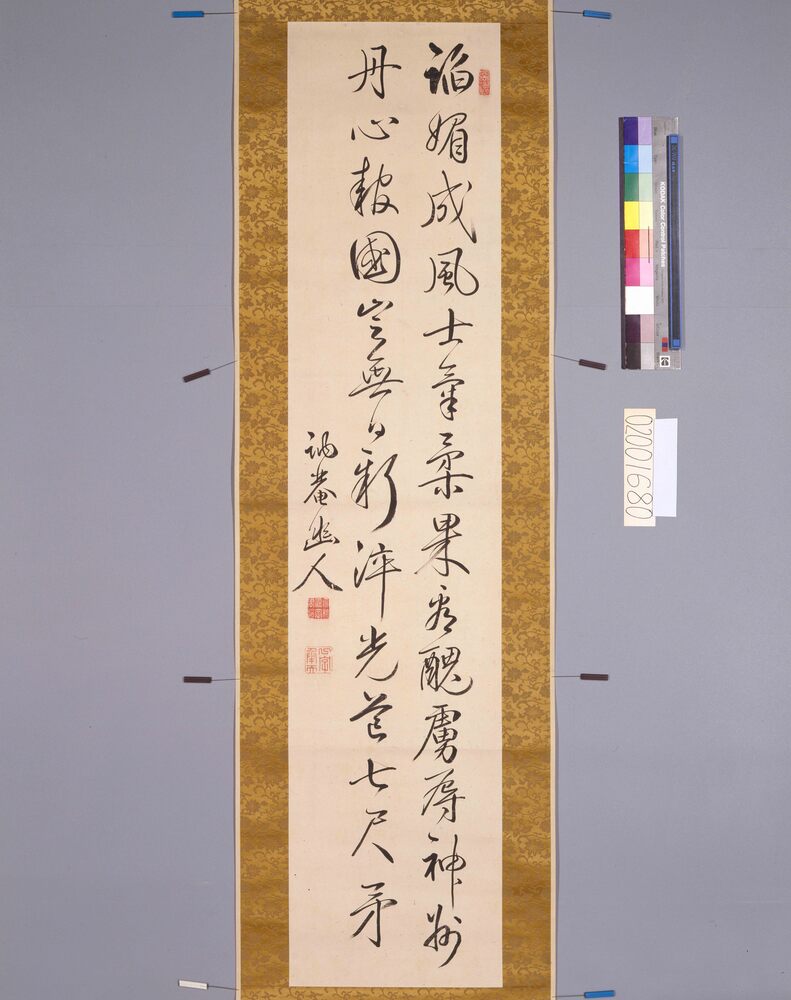 諂媚成風士氣柔果看醜虜辱神州
丹心報國豈無日新淬光芒七尺矛
訥菴幽人
KODAK Color Control Patches
02001680